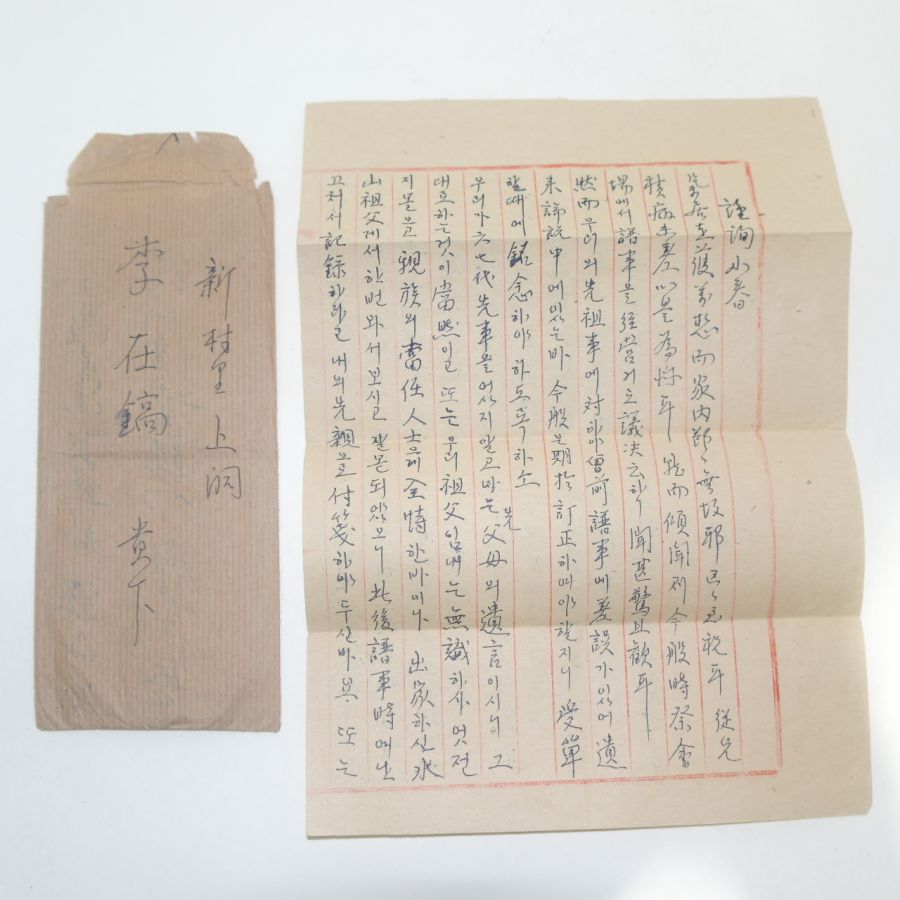 新村里 上洞
李在鎬 貴下
謹詢小春
家內 無故耶 耳 從兄
病未差 以是為 耳 而傾聞則 今般時祭會
場에서 譜事를 經營키로 議決云하니 聞甚驚且歡耳
然而우리의 先祖事에 対하야 曾前 譜事에 差誤가 있어 遺
来 論説中에 있는바 今般은 期於 訂正하여야 할지니 受單
할때에 銘念하야 하도록 하소
우리가 六七代 先事를 어찌 알고마는 先父母의 遺言이시니 그
대로 하는것이 當然이고 또는 우리 祖父님께는 無識하사 멋전
지 몰으고 親族의 當任人士으게 全恃한바이니 出家하실 水
山祖父게서 한번 와서 보시고 잘못되얏으니 此後 譜事時에난
고처서 記錄하라고 내의 先親으로 付箋하야 두신바요 또는